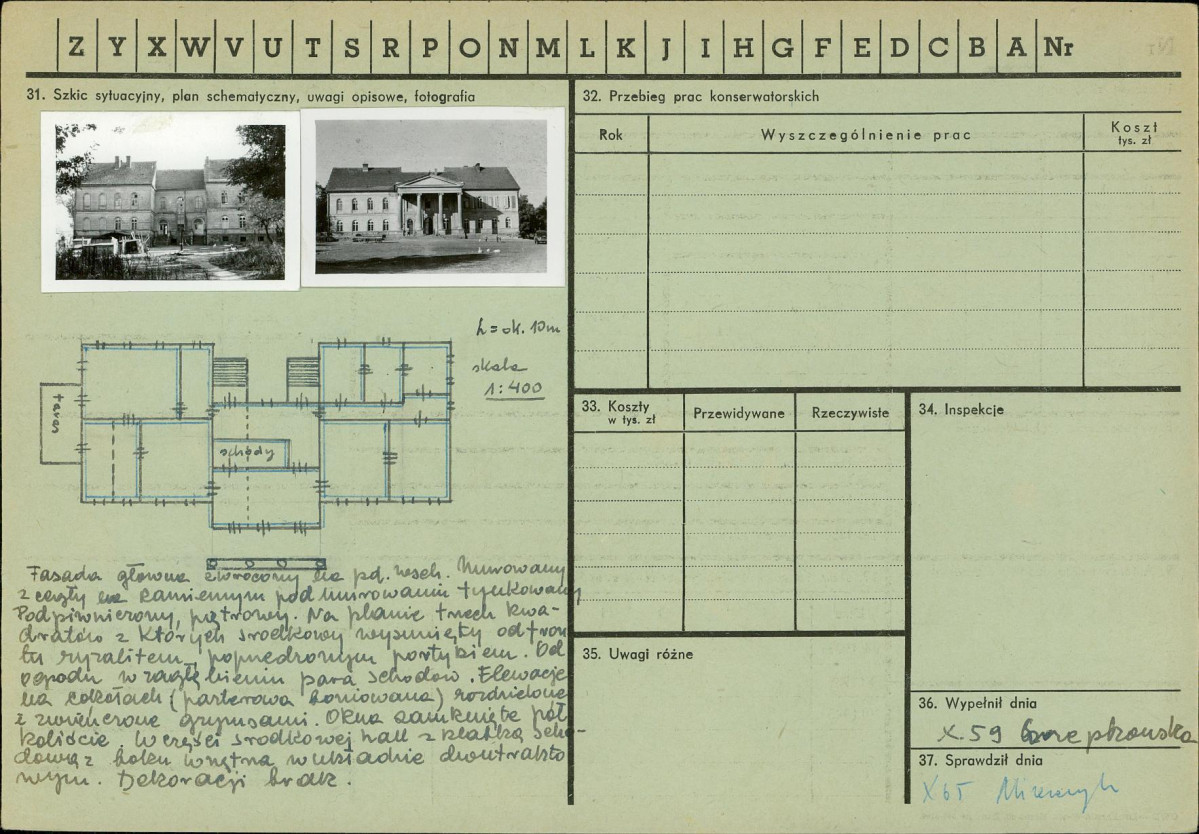 Z Y X W V U T S R P O N M L K J I H G F E D C B A Nr
31. Szkic sytuacyjny, plan schematyczny, uwagi opisowe, fotografia
h = ok. 10m
skala
1:400
taras
schody
Fasada główna zwrócony na pd. wsch. Murowany
z cegły na kamiennym podmurowaniu tynkowany
Podpiwniczony, piętrowy. Na planie trzech kwa-
dratów z których środkowy wysunięty od fron
tu ryzalitem poprzedzonym portykiem. Od
ogrodu w zagłębieniu para schodów. Elewacje
na cokołach (parterowa boniowana) rozdzielone
i zwieńczone gzymsami. Okna zamknięte pół
koliście. W części środkowej hall z klatką scho-
dową z boku wnętrza w układzie dwutrakto
wym. Dekoracji brak.
32. Przebieg prac konserwatorskich
Rok Wyszczególnienie prac Koszt
tys. zł
33. Koszty
w tys. zł
Przewidywane Rzeczywiste
34. Inspekcje
35. Uwagi różne
36. Wypełnił dnia
X.59
37. Sprawdził dnia
X 65